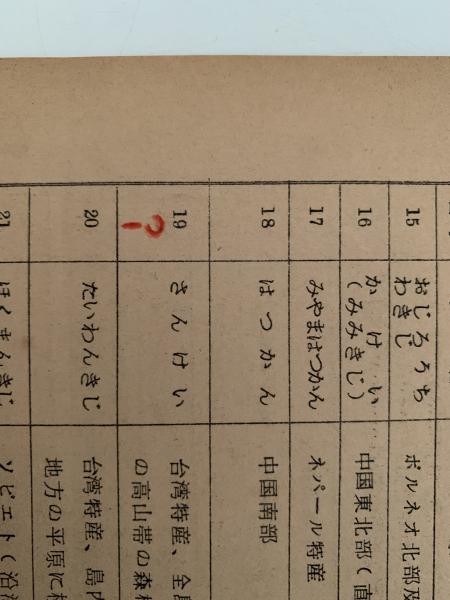 15
おじろうち
わきじ
ボルネオ北部及
16
かけい
(みみきじ)
中国東北部(直
17
みやまはつかん
ネパール特産
18
はつかん
中国南部
19
?
さんけい
台湾特産、全島
の高山帯の森林
20
たいわんきじ
台湾特産、島内
地方の平原に
21
ほくまんきじ
ソビエト(沿